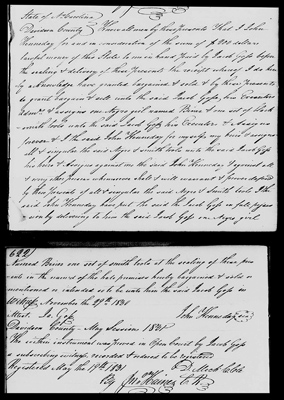 State of N. Carolina
Davidson County Know all men by these Presents That I John
Hennesay for and in consideration of the sum of $400 dollars
lawful money of this State to me in hand paid by Jacob Goss before
the sealing & delivery of these Presents the receipt whereof I do here
by Acknowledge have granted bargained & sold & by these Presents
do grant bargain & sell unto the said Jacob Goss, his Executors
Admrs. & assigns one negro girl named one set of black
smith tools unto the said Jacob Goss his Executors & Assigns
forever & I the said John Hennesay for myself my heirs & assigns
all & singular the said Negro & smith tools unto the said Jacob Goss
his heirs & Assigns against me the said John Hennesay & against all
& every other person whatsoever shall & will warrant & forever defend
by these Presents of all & singular the said Negro & Smith tools I the
said John Hennesay have put the said Jacob Goss in full posses
sion by delivering to him the said Jacob Goss one Negro girl
622
named one set of smith tools at the sealing of these pre
sents in the name of the hole premises hereby bargained & sold or
mentioned or intended so to be unto him the said Jacob Goss
Witness, November the 29th 1830
Attest. John Hennesay
Davidson County May Session 1831
The within instrument was proved in Open Court by Jacob Goss
a subscribing witness, recorded & ordered to be registered
Registered May the 19th 1831 D. Mock
By